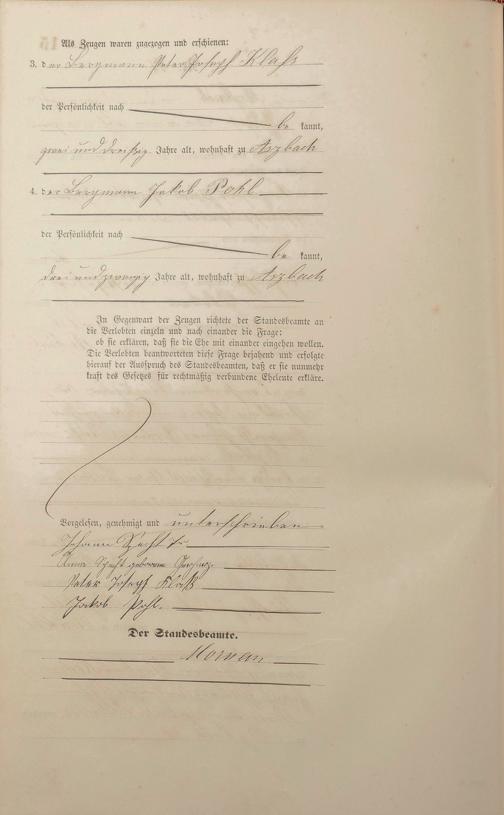 Als Zeugen waren zugezogen und erschienen:
3. der Bergmann Peter Joseph Klaß
der Persönlichkeit nach
be kannt,
zwei und dreißig Jahre alt, wohnhaft zu Arzbach
4. der Bergmann Jakob Pohl
der Persönlichkeit nach
be kannt,
drei und zwanzig Jahre alt, wohnhaft zu Arzbach
In Gegenwart der Zeugen richtete der Standesbeamte an
die Verlobten einzeln und nach einander die Frage:
ob sie erklären, daß sie die Ehe mit einander eingehen wollen.
Die Verlobten beantworteten diese Frage bejahend und erfolgte
hierauf der Ausspruch des Standesbeamten, daß er sie nunmehr
kraft des Gesetzes für rechtmäßig verbundene Eheleute erkläre.
Vorgelesen, genehmigt und unterschrieben
Johann
Anna geborene
Peter Joseph Klaß
Jakob Pohl.
Der Standesbeamte.